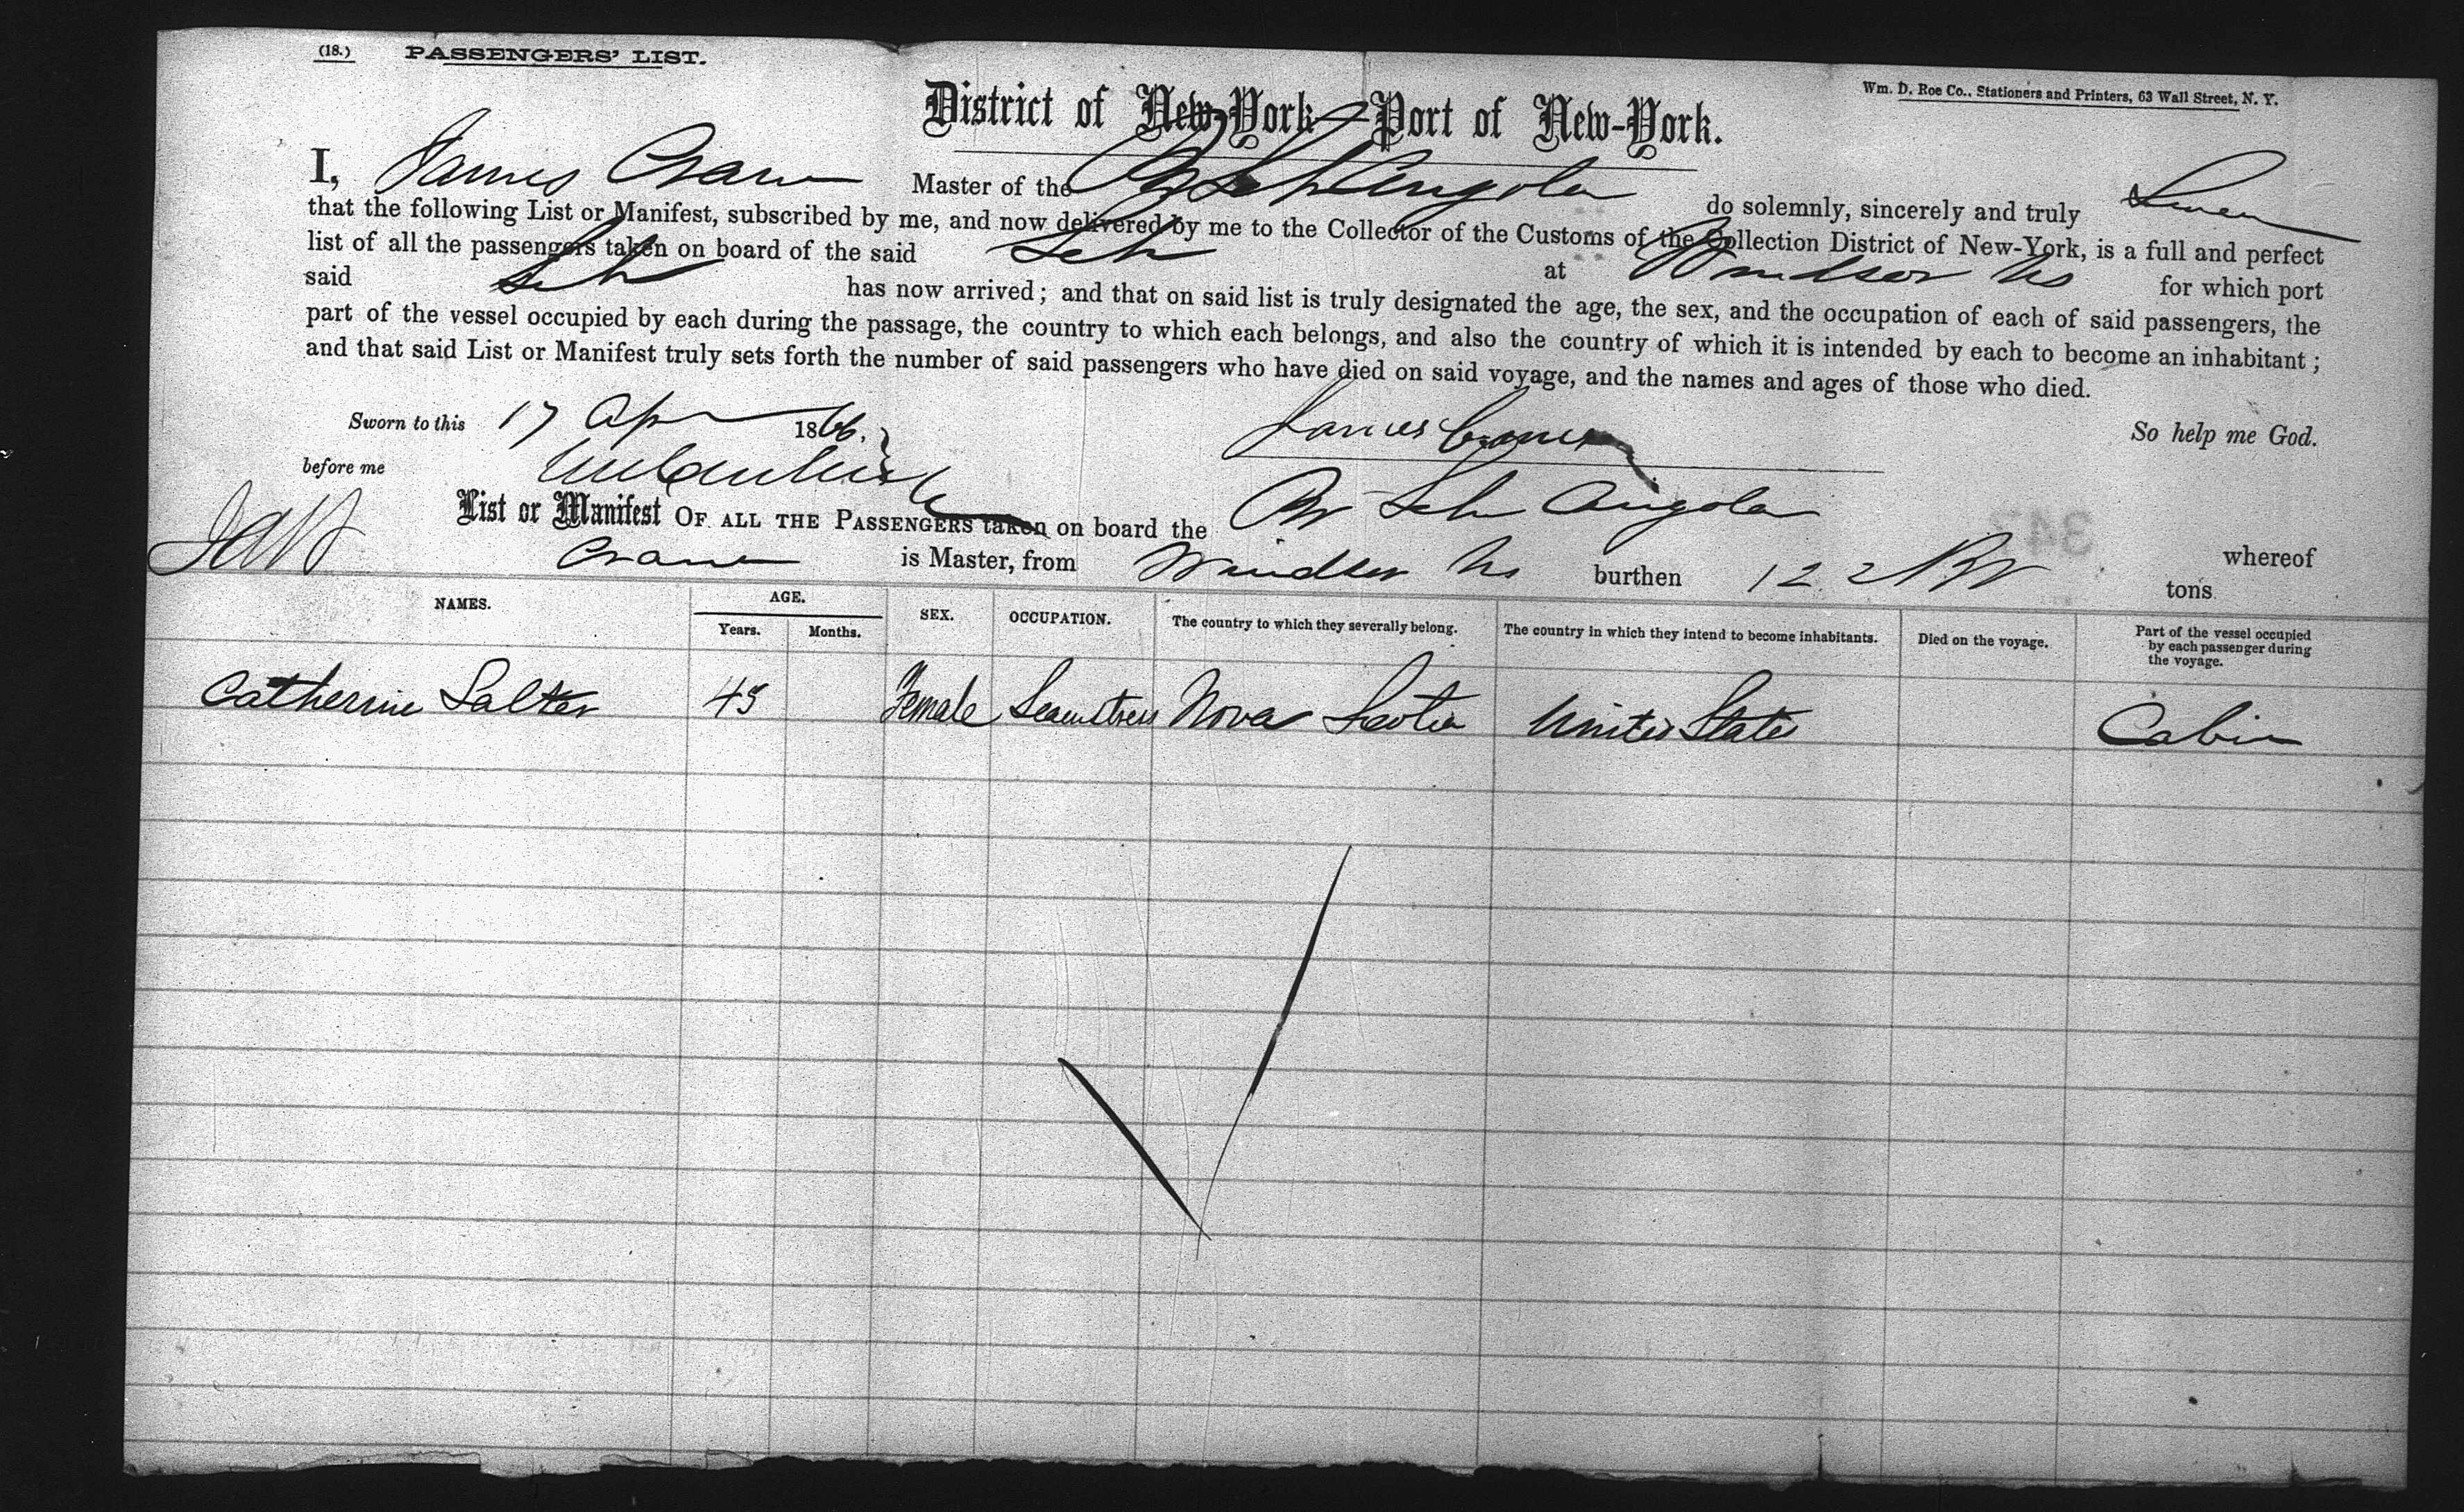 (18.) PASSENGERS' LIST.
Wm. D. Roe Co., Stationers and Printers, 63 Wall Street, N. Y.
District of New-York—Port of New-York.
I, James Crane Master of the Br Sch Angola do solemnly, sincerely and truly Swear
that the following List or Manifest, subscribed by me, and now delivered by me to the Collector of the Customs of the Collection District of New-York, is a full and perfect
list of all the passengers taken on board of the said Sch at Windsor Ns for which port
said Sch has now arrived; and that on said list is truly designated the age, the sex, and the occupation of each of said passengers, the
part of the vessel occupied by each during the passage, the country to which each belongs, and also the country of which it is intended by each to become an inhabitant;
and that said List or Manifest truly sets forth the number of said passengers who have died on said voyage, and the names and ages of those who died.
Sworn to this 17 Apr 1866. So help me God.
before me James Crane
List or Manifest OF ALL THE PASSENGERS taken on board the Br Sch Angola whereof
Crane is Master, from Windsor Ns burthen 122 tons
NAMES. AGE. SEX. OCCUPATION. The country to which they severally belong. The country in which they intend to become inhabitants. Died on the voyage. Part of the vessel occupied by each passenger during the voyage.
Years. Months.
Catherine Salter 45 Female Seamstress Nova Scotia United States Cabin